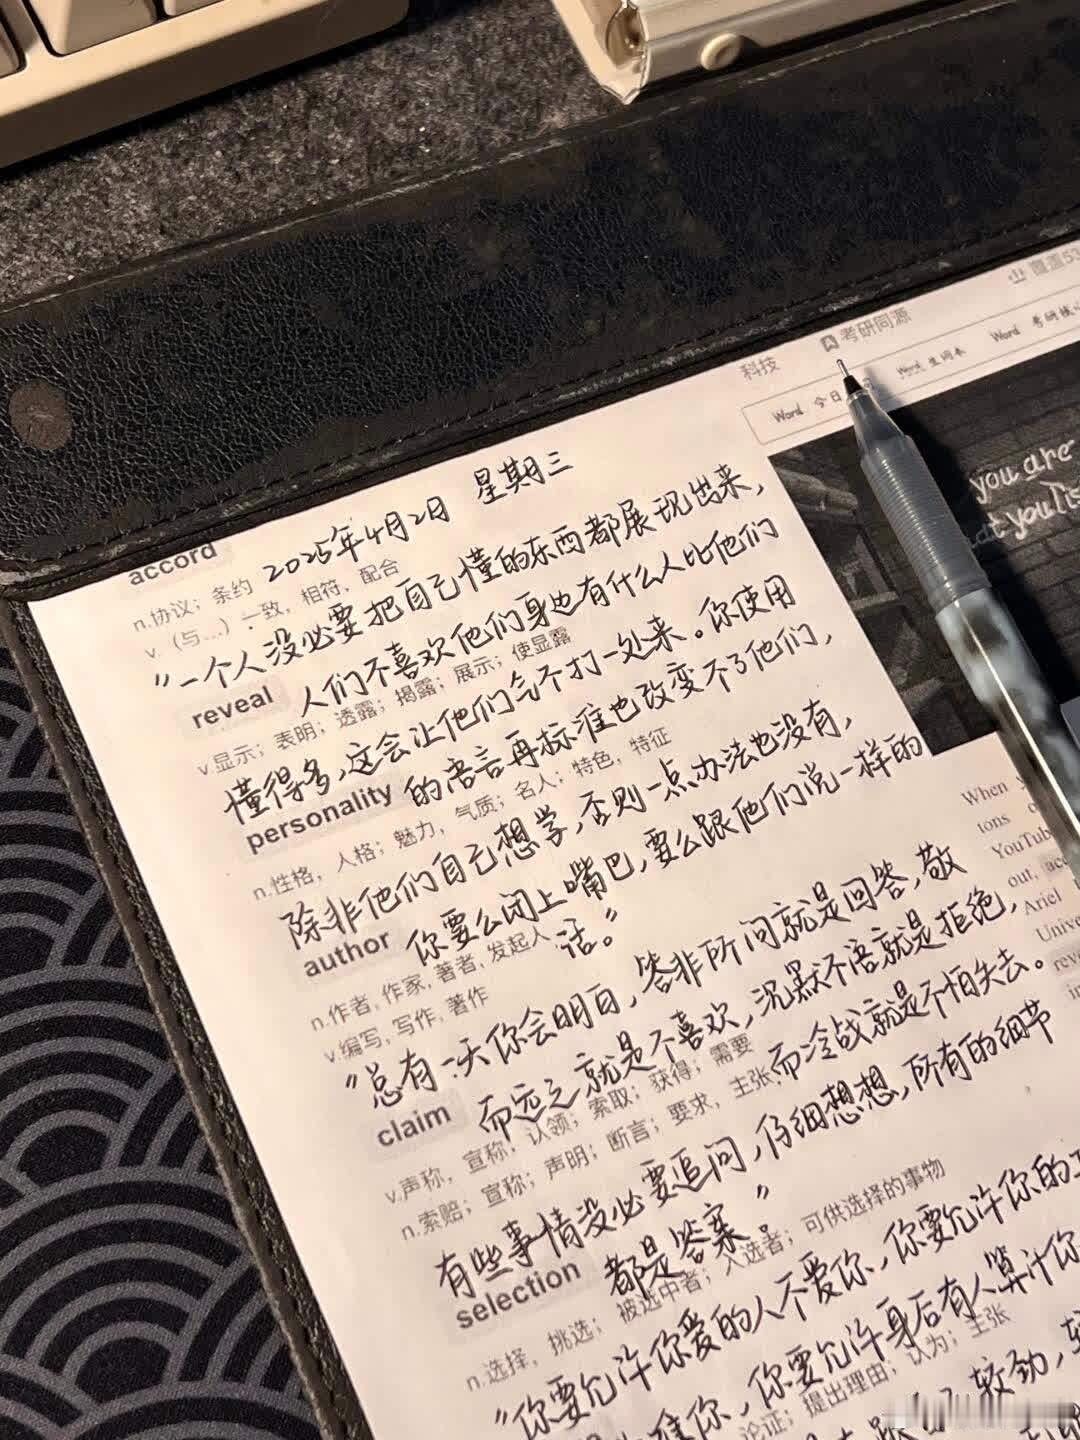 直蛋53
科技 考研同源
Word 今日
Word 生词本
Word 考研核心
you are
at you lis
2025年4月2日 星期三
accord
n.协议；条约
v.（与...）一致，相符，配合
"一个人没必要把自己懂的东西都展现出来，
reveal 人们不喜欢他们身边有什么人比他们
v.显示；表明；透露；揭露；展示；使显露
懂得多，这会让他们气不打一处来。你使用
personality 的语言再标准也改变不了他们，
n.性格，人格；魅力，气质；名人；特色，特征
除非他们自己想学，否则一点办法也没有，
author 你要么闭上嘴巴，要么跟他们说一样的
话。"
n.作者，作家，著者，发起人
v.编写，写作，著作
"总有一天你会明白，答非所问就是回答，敬
claim 而远之就是不喜欢，沉默不语就是拒绝，
v.声称，宣称，认领；索取；获得；需要
而冷战就是不怕失去。
n.索赔；宣称；声明；断言；要求，主张
有些事情没必要追问，仔细想想，所有的细节
selection 都是答案"
n.选择，挑选；被选中者；入选者；可供选择的事物
"你要允许你爱的人不爱你，你要允许你的
难你，你要允许身后有人算计你
论证；提出理由；认为；主张
较劲，
When
ions
YouTub
out, acc
Ariel
Unive
reve
in